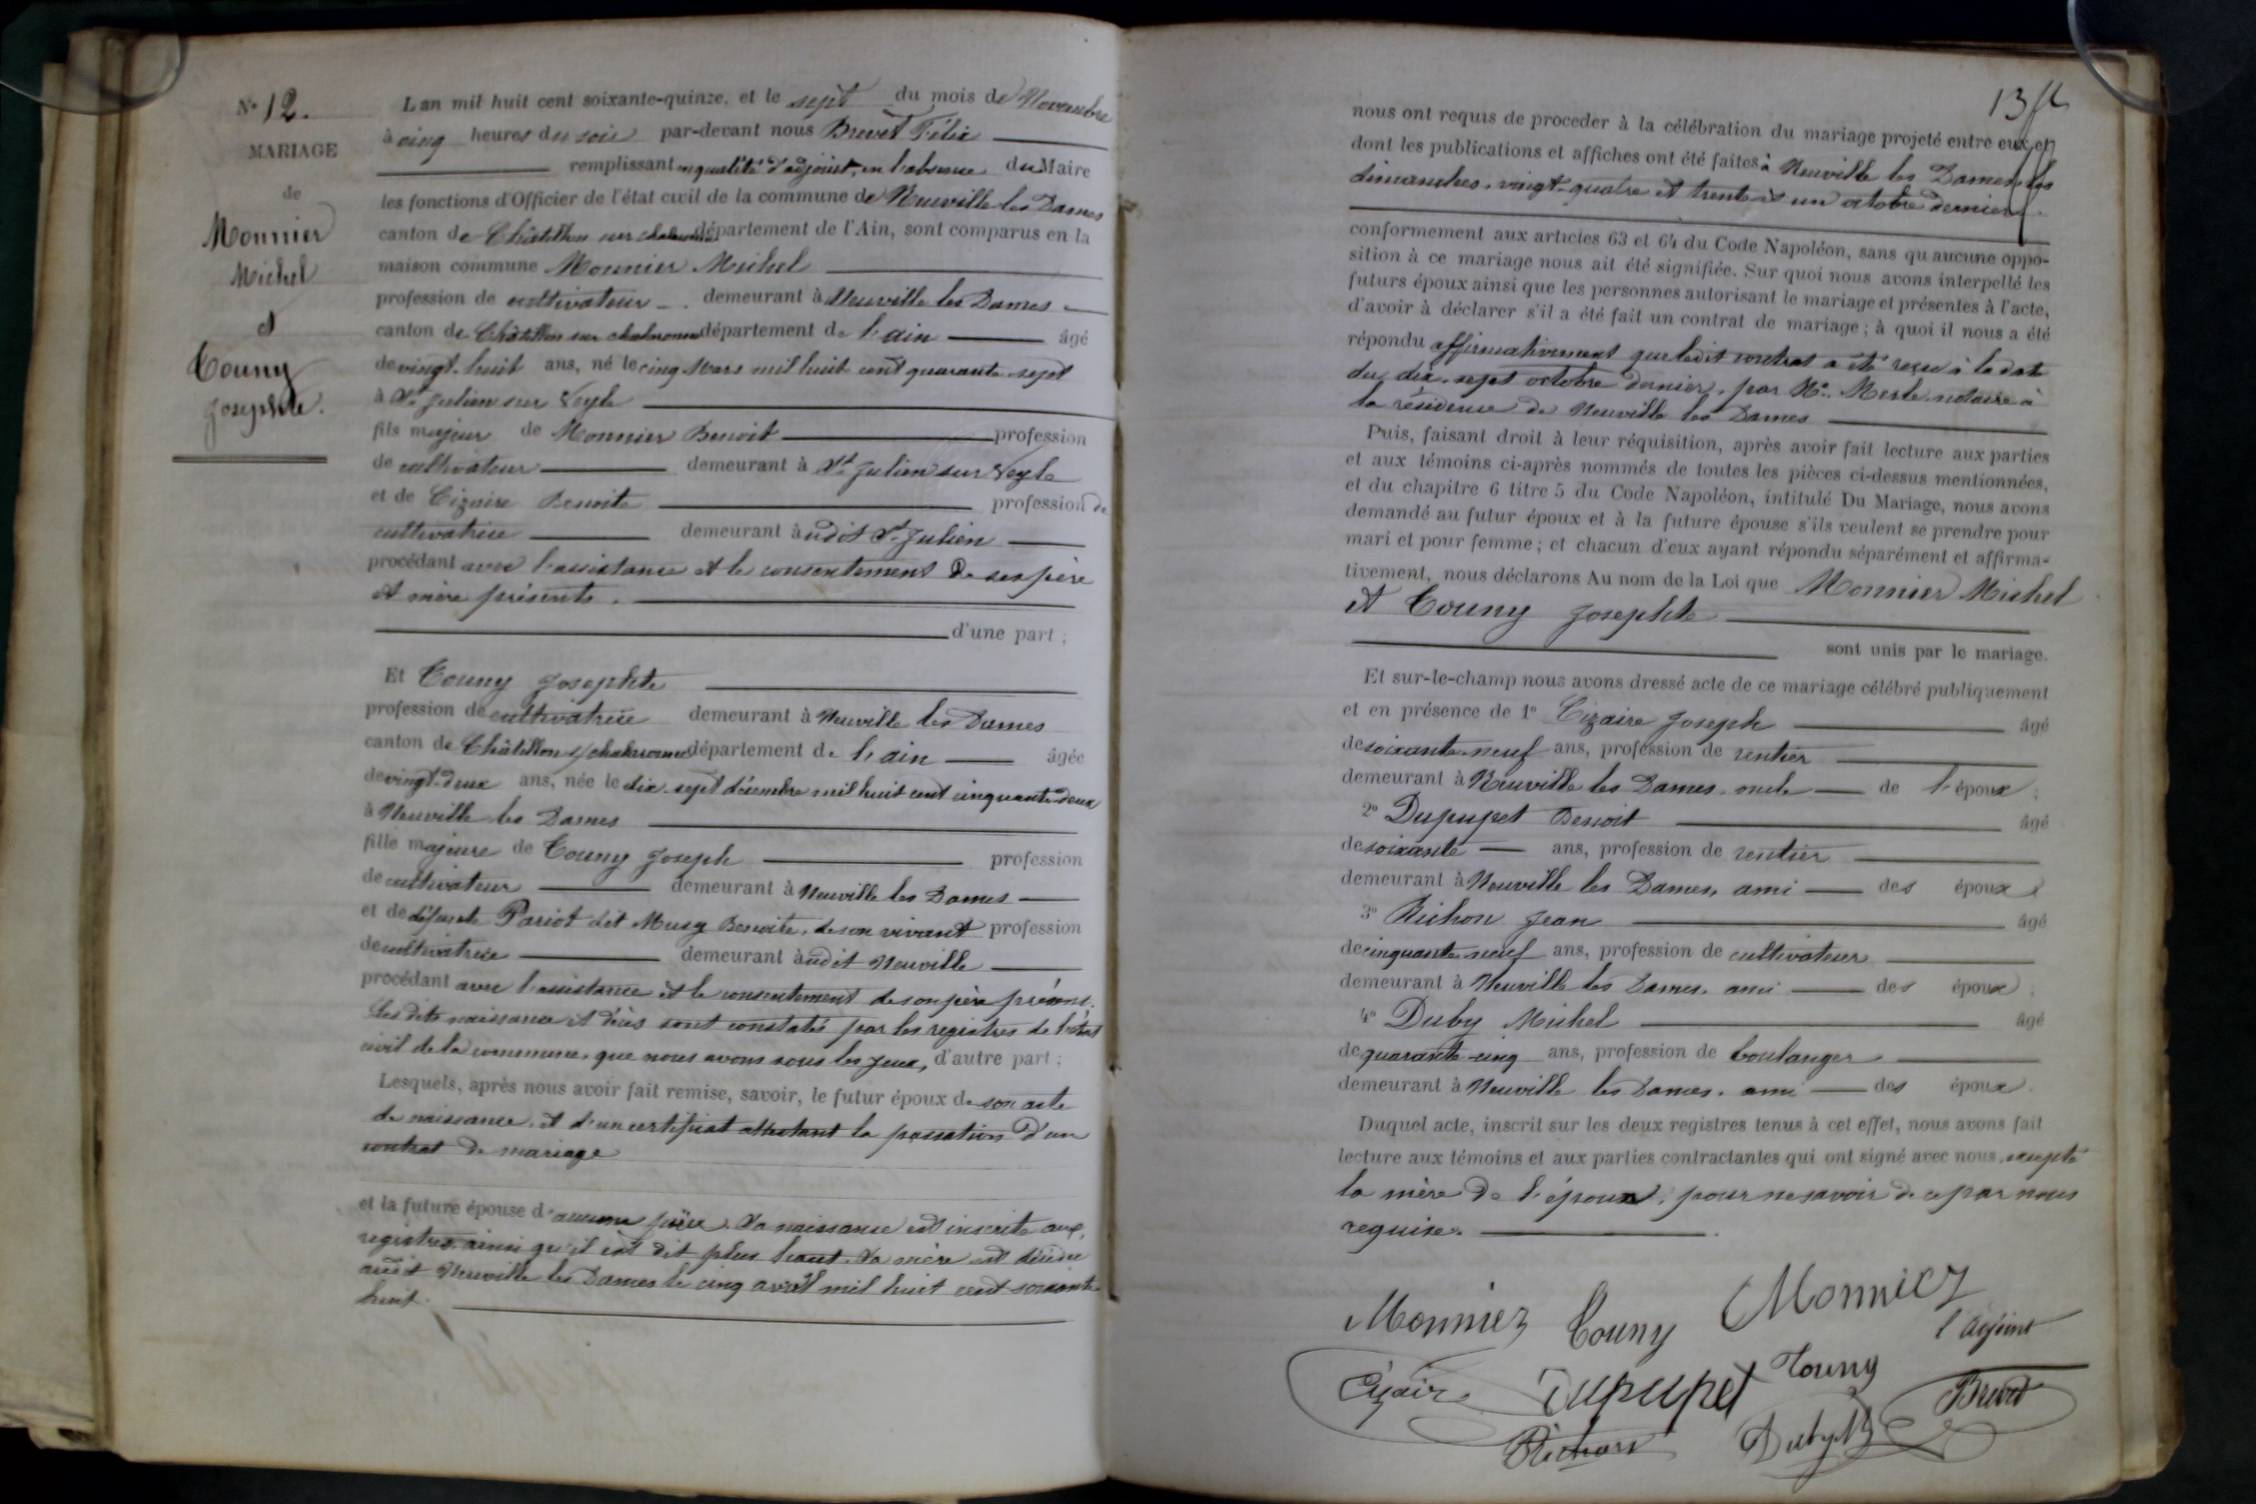 N° 12.
MARIAGE
de
Monnier
Michel
et
Touny
Josephte.
L'an mil huit cent soixante-quinze, et le sept du mois de Novembre
à cinq heures du soir par-devant nous Brevet Félix
remplissant en qualité d'adjoint, en l'absence du Maire
les fonctions d'Officier de l'état civil de la commune de Neuville les Dames
canton de Châtillon sur chalaronne département de l'Ain, sont comparus en la
maison commune Monnier Michel
profession de cultivateur demeurant à Neuville les Dames
canton de Châtillon sur chalaronne département de l'ain âgé
de vingt-huit ans, né le cinq Mars mil huit cent quarante sept
à St Julien sur Veyle
fils majeur de Monnier Benoit profession
de cultivateur demeurant à St Julien sur Veyle
et de Cizaire Benoite profession de
cultivatrice demeurant à udit St Julien
procédant avec l'assistance et le consentement de ses père
et mère présents.
d'une part ;
Et Touny Josephte
profession de cultivatrice demeurant à Neuville les Dames
canton de Châtillon s/ chalaronne département de l'ain âgée
de vingt-deux ans, née le dix-sept décembre mil huit cent cinquante-deux
à Neuville les Dames
fille majeure de Touny Joseph profession
de cultivateur demeurant à Neuville les Dames
et de défunte Pariot dit Musy Benoite, de son vivant profession
de cultivatrice demeurant à udit Neuville
procédant avec l'assistance et le consentement de son père présent.
Les dits naissance et décès sont constatés par les registres de l'état
civil de la commune, que nous avons sous les yeux, d'autre part ;
Lesquels, après nous avoir fait remise, savoir, le futur époux de son acte
de naissance, et d'un certificat attestant la passation d'un
contrat de mariage
et la future épouse d'aucune pièce. Sa naissance est inscrite aux
registres, ainsi qu'il est dit plus haut. Sa mère est décédée
audit Neuville les Dames le cinq avril mil huit cent soixante
huit.
13
nous ont requis de proceder à la célébration du mariage projeté entre eux et
dont les publications et affiches ont été faites à Neuville les Dames les
dimanches, vingt-quatre et trente et un octobre dernier.
conformement aux articles 63 et 64 du Code Napoléon, sans qu'aucune oppo-
sition à ce mariage nous ait été signifiée. Sur quoi nous avons interpellé les
futurs époux ainsi que les personnes autorisant le mariage et présentes à l'acte,
d'avoir à déclarer s'il a été fait un contrat de mariage ; à quoi il nous a été
répondu affirmativement que ledit contrat a été reçu à la date
du dix-sept octobre dernier, par Me. Merle notaire à
la résidence de Neuville les Dames
Puis, faisant droit à leur réquisition, après avoir fait lecture aux parties
et aux témoins ci-après nommés de toutes les pièces ci-dessus mentionnées,
et du chapitre 6 titre 5 du Code Napoléon, intitulé Du Mariage, nous avons
demandé au futur époux et à la future épouse s'ils veulent se prendre pour
mari et pour femme ; et chacun d'eux ayant répondu séparément et affirma-
tivement, nous déclarons Au nom de la Loi que Monnier Michel
et Touny Josephte
sont unis par le mariage.
Et sur-le-champ nous avons dressé acte de ce mariage célébré publiquement
et en présence de 1° Cizaire Joseph âgé
de soixante-neuf ans, profession de rentier
demeurant à Neuville les Dames, oncle de l'époux ;
2° Dupupet Benoit âgé
de soixante ans, profession de rentier
demeurant à Neuville les Dames, ami des époux ;
3° Richon Jean âgé
de cinquante-neuf ans, profession de cultivateur
demeurant à Neuville les Dames, ami des époux ;
4° Duby Michel âgé
de quarante-cinq ans, profession de boulanger
demeurant à Neuville les Dames, ami des époux.
Duquel acte, inscrit sur les deux registres tenus à cet effet, nous avons fait
lecture aux témoins et aux parties contractantes qui ont signé avec nous, excepté
la mère de l'époux, pour ne savoir de ce par nous
requise.
Monnier Touny Monnier
l'adjoint
Cizaire Dupupet Touny Brevet
Richon Duby M